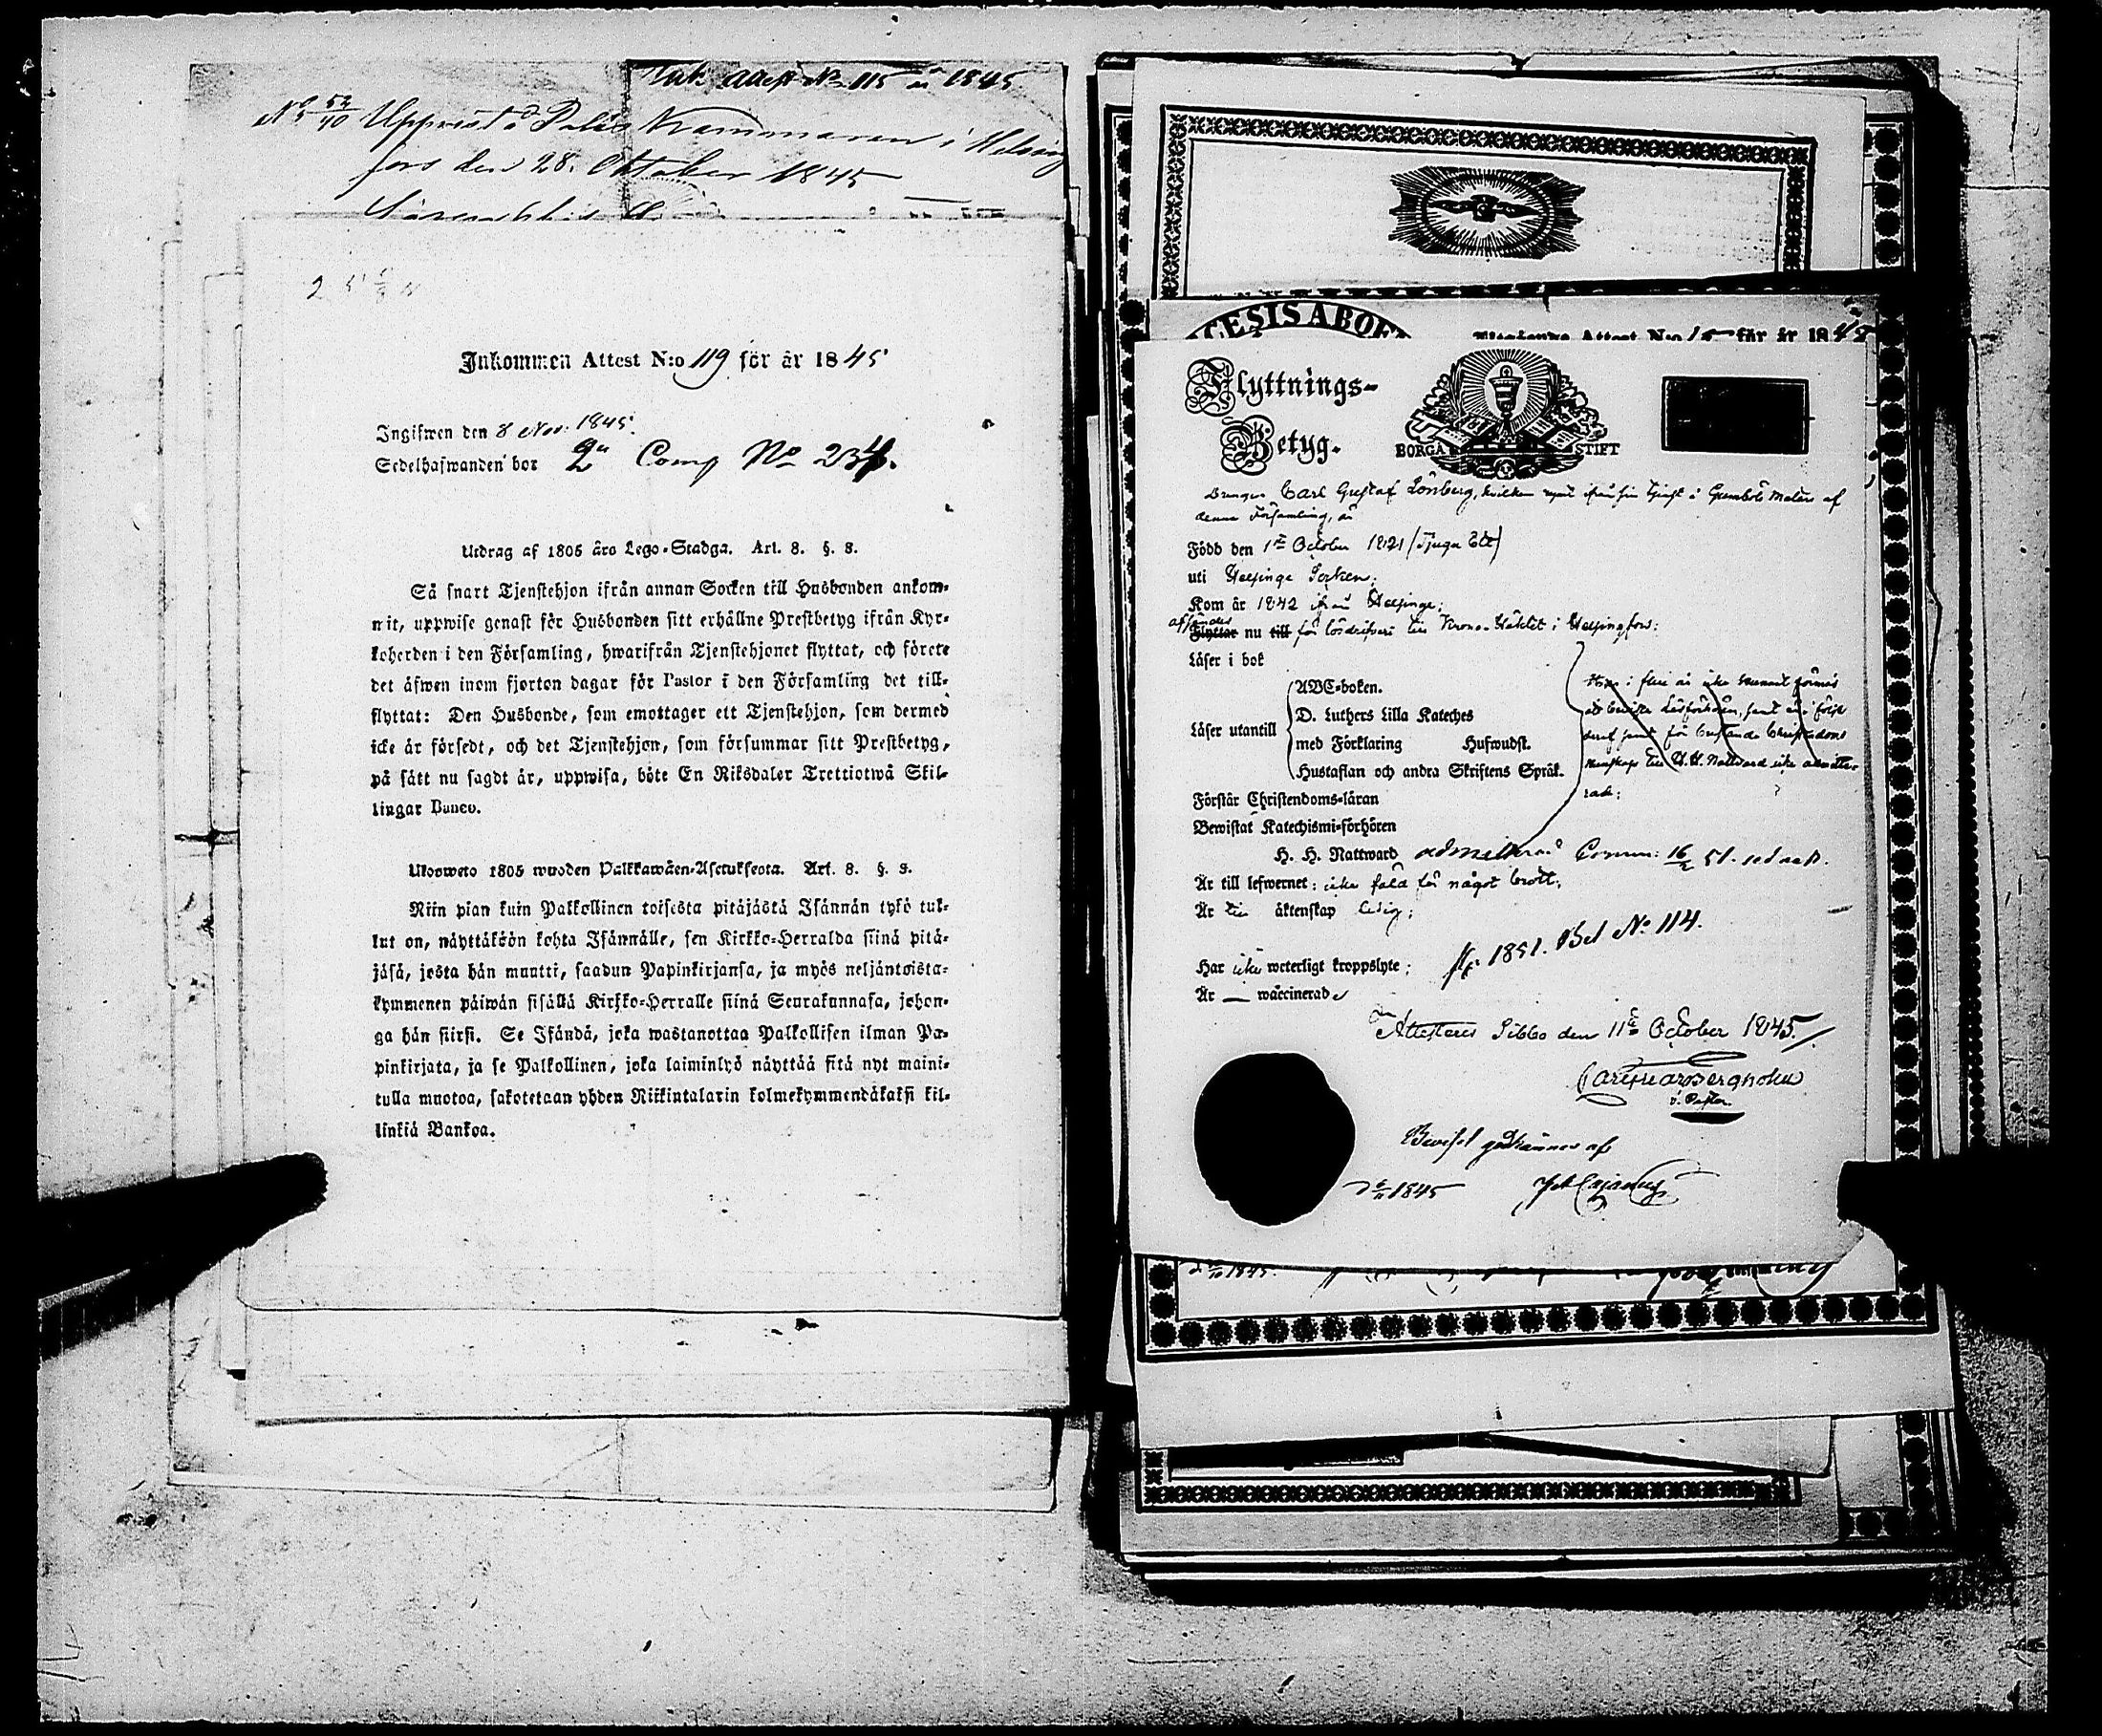 Ink. Attest No 115 år 1845
No 52/40 Uppvist å Polis Kammaren i Helsing
fors den 28. Oktober 1845
Inkommen Attest N:o 119 för år 1845
Ingifwen den 8 Nov: 1845.
Sedelhafwanden bor 2a Comp No 234.
Utdrag af 1805 års Lego-Stadga. Art. 8. §. 8.
Så snart Tjenstehjon ifrån annan Socken till Husbonden ankom-
mit, uppwise genast för Husbonden sitt erhållne Prestbetyg ifrån Kyr-
koherden i den Församling, hwarifrån Tjenstehjonet flyttat, och förete
det äfwen inom fjorton dagar för Pastor i den Församling det till-
flyttat: Den Husbonde, som emottager ett Tjenstehjon, som dermed
icke är försedt, och det Tjenstehjon, som försummar sitt Prestbetyg,
på sätt nu sagdt är, uppwisa, böte En Riksdaler Trettiotwå Skil-
lingar Banco.
Ulosweto 1805 wuoden Palkkawäen-Asetuksesta. Art. 8. §. 8.
Niin pian kuin Palkollinen toisesta pitäjästä Isännän tykö tul-
lut on, näyttäköön kohta Isännälle, sen Kirkko-Herralda siinä pitä-
jäsä, josta hän muutti, saadun Papinkirjansa, ja myös neljäntoista-
kymmenen päiwän sisällä Kirkko-Herralle siinä Seurakunnasa, johon-
ga hän siirsi. Se Isändä, joka wastanottaa Palkollisen ilman Pa-
pinkirjata, ja se Palkollinen, joka laiminlyö näyttää sitä nyt maini-
tulla muotoa, sakotetaan yhden Riikintalarin kolmekymmendäkaksi kil-
linkiä Bankoa.
CESIS ABOE
Attest N:o 15 för år 1845
Flyttnings-
Betyg.
BORGÅ STIFT
Drengen Carl Gustaf Lönberg, hvilken rymt ifrån sin tjenst i Gumbole Malm af
denna Församling, är
Född den 1ste October 1821 (Tjugu Ett)
uti Helsinge Socken;
Kom år 1842 ifrån Helsinge;
afsändes
Flyttar nu till för lösdrifveri till Krono-Häktet i Helsingfors:
Läser i bok
Läser utantill
ABC-boken.
D. Luthers Lilla Kateches
med Förklaring Hufwudst.
Hustaflan och andra Skriftens Språk.
Förstår Christendoms-läran
Bewistat Katechismi-förhören
H. H. Nattward admitterad Comm: 16/2 51.
Är till lefwernet: icke fäld för något brott;
Är till äktenskap ledig;
Har icke weterligt kroppslyte;
fl. 1851. Bet No 114.
Är — waccinerad
Attesteras Sibbo den 11te October 1845.
v. Pastor.
Beviset godkännes af
1845